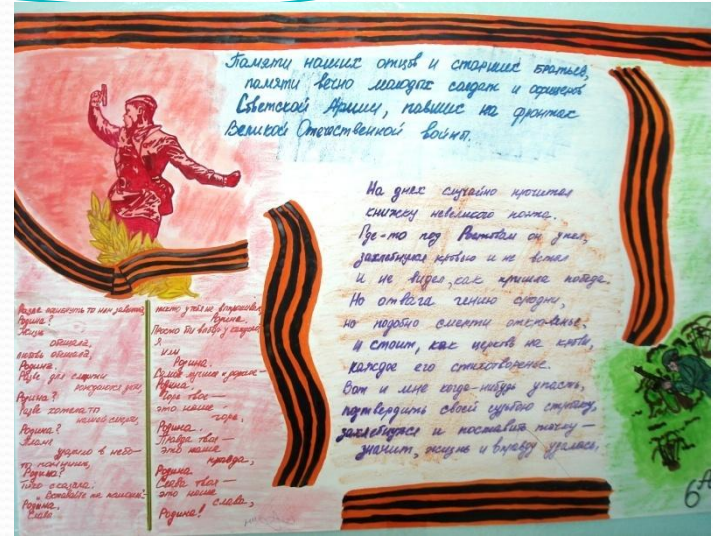 Памяти наших отцов и старших братьев,
памяти вечно молодых солдат и офицеров
Советской Армии, павших на фронтах
Великой Отечественной войны.
На днях случайно прочитал
книжку невеликого поэта.
Где-то под Ростовом он упал,
захлебнулся кровью и не встал
и не видел, как пришла победа.
Но отвага гению сродни,
но подобно смерти
и стоит, как церковь на крови,
каждое его стихотворенье.
Вот и мне когда-нибудь упасть,
подтвердить своей судьбою строчку,
захлебнуться и поставить точку –
значит, жизнь и вправду удалась.
Разве погибнуть ты нам завещала,
Родина?
Жизнь
обещала,
любовь обещала,
Родина.
Разве для смерти
рождаются дети,
Родина?
Разве хотела ты
нашей смерти,
Родина?
Пламя
ударило в небо –
ты помнишь,
Родина?
Тихо сказала:
Родина.
Слава
Родина.
Просто был выбор у каждого:
Я
или
Родина.
Самое лучшее и дорогое –
Родина.
Горе твое –
это наше
горе,
Родина.
Правда твоя –
это наша
правда,
Родина.
Слава твоя –
это наша
слава,
Родина!
6 А